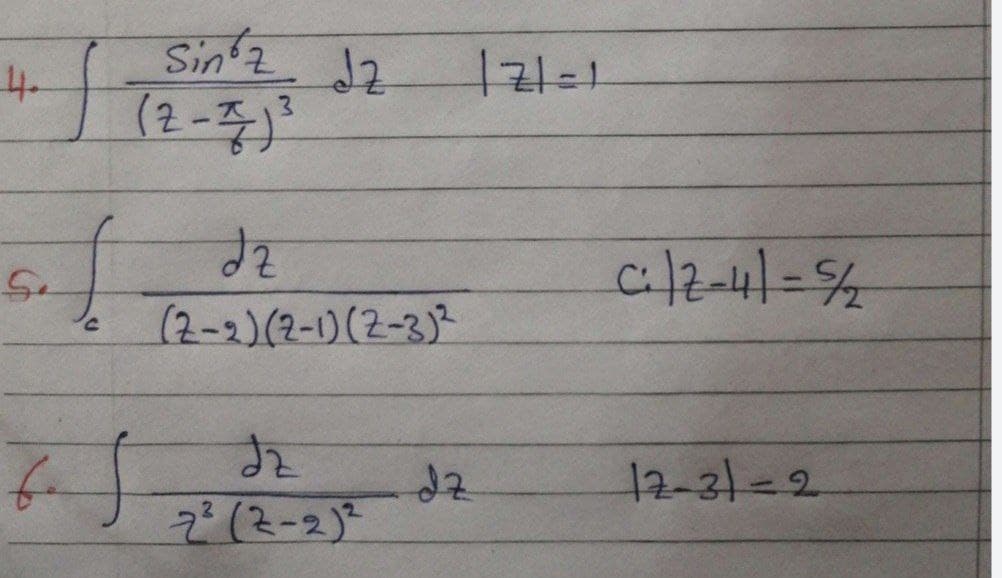 4. ∫ sin⁶z / (z - π/6)³ dz |z| = 1
5. ∫c dz / (z-2)(z-1)(z-3)² C: |z-4| = 5/2
6. ∫ dz / z³ (z-2)² dz |z-3| = 2